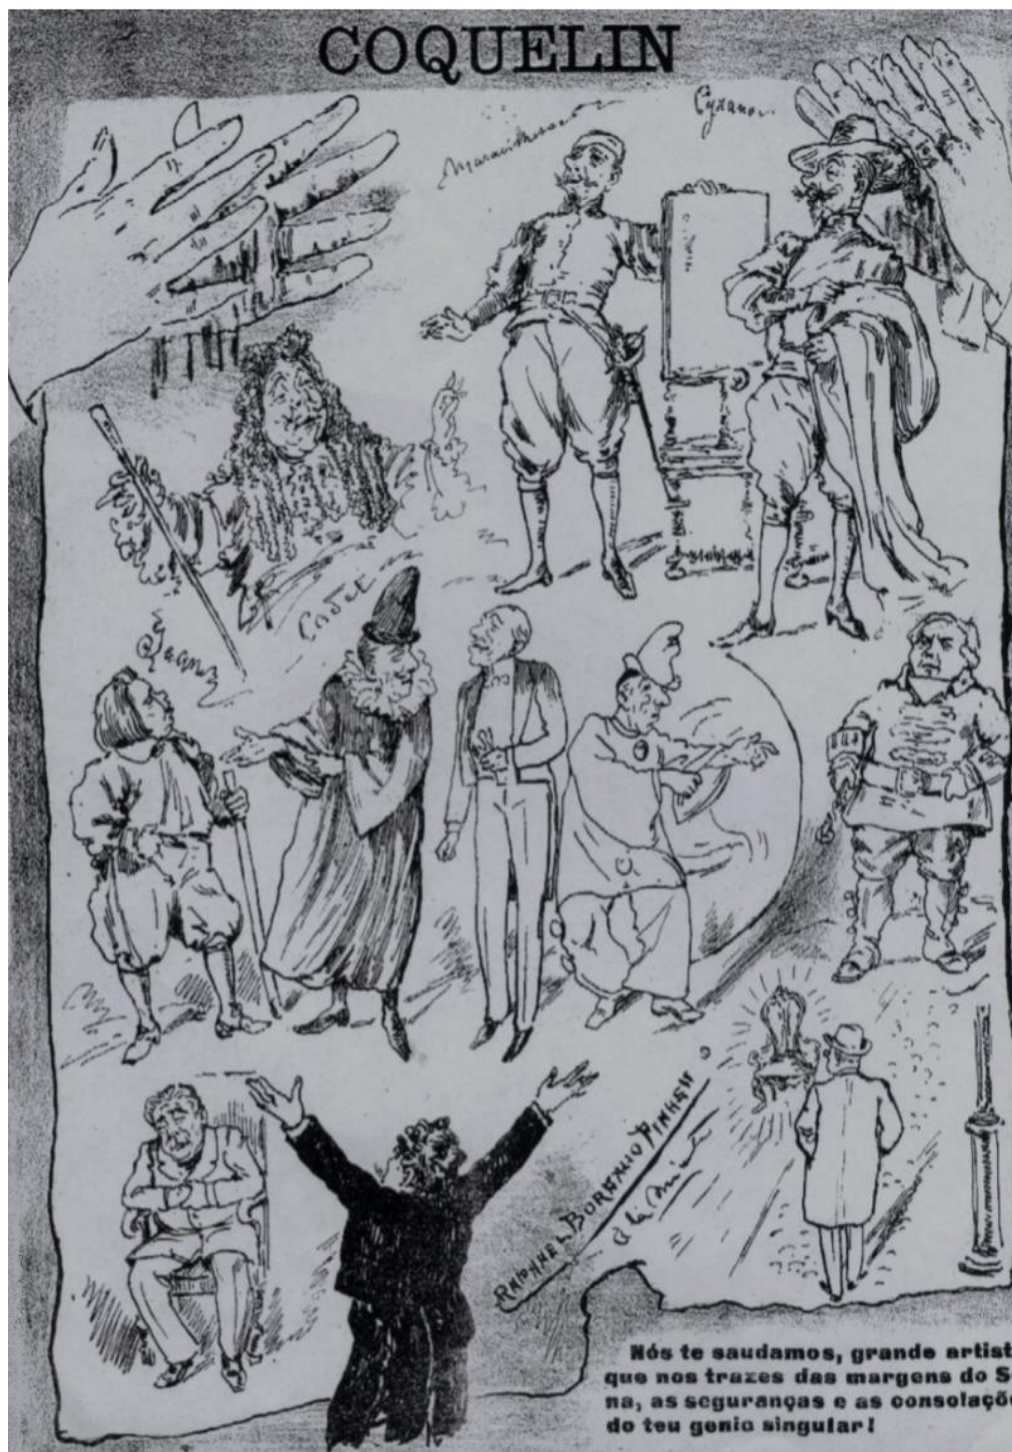 COQUELIN
Cyrano
Cadet
Jean
RAPHAEL BORDALLO PINHEIRO
Nós te saudamos, grande artist
que nos trazes das margens do S
na, as seguranças e as consolaçõ
do teu genio singular!